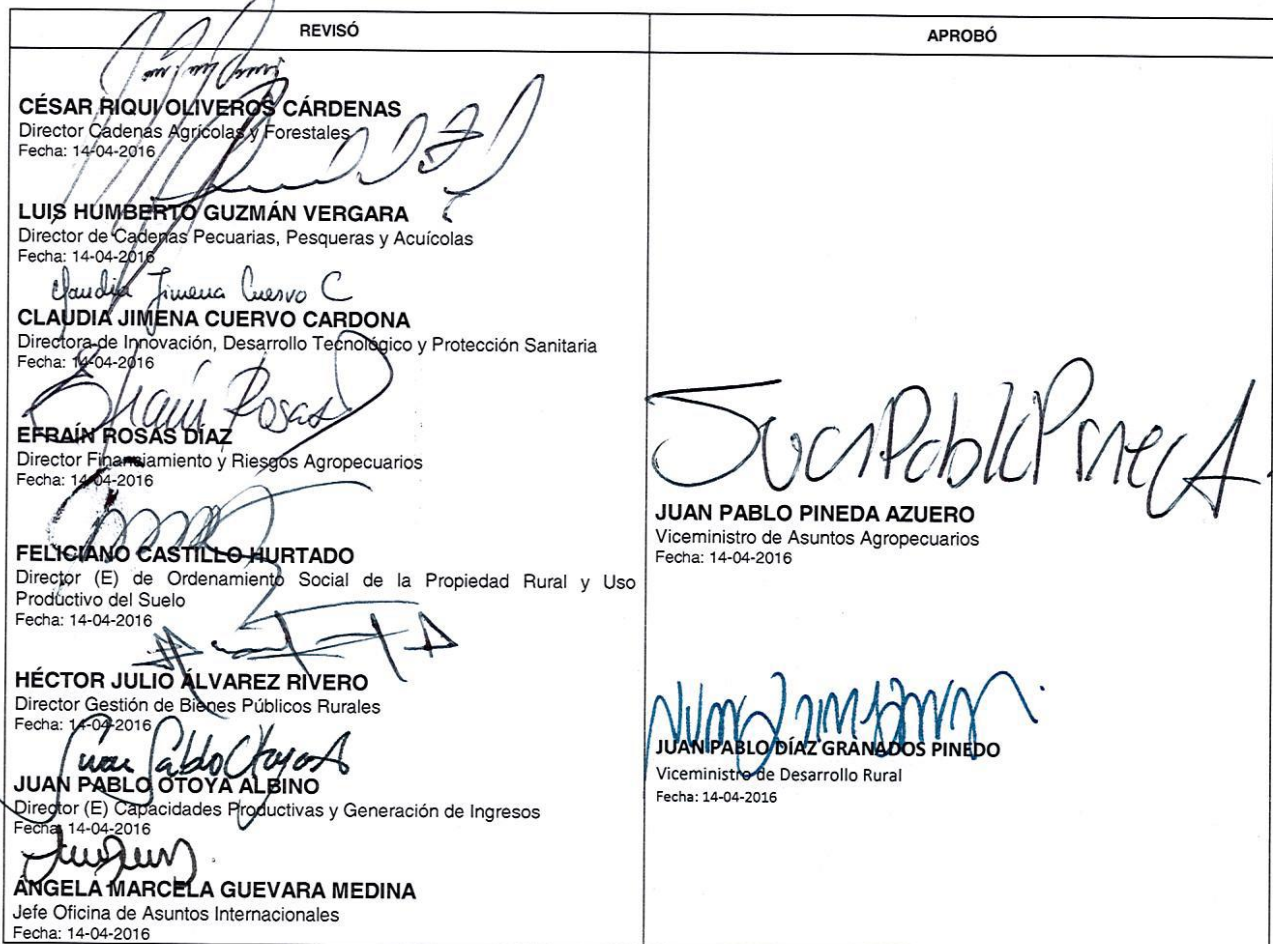 REVISÓ
CÉSAR RIQUI OLIVEROS CÁRDENAS
Director Cadenas Agrícolas y Forestales
Fecha: 14-04-2016
LUIS HUMBERTO GUZMÁN VERGARA
Director de Cadenas Pecuarias, Pesqueras y Acuícolas
Fecha: 14-04-2016
Claudia Jimena Cuervo C
CLAUDIA JIMENA CUERVO CARDONA
Directora de Innovación, Desarrollo Tecnológico y Protección Sanitaria
Fecha: 14-04-2016
Efraín Rosas
EFRAÍN ROSAS DÍAZ
Director Financiamiento y Riesgos Agropecuarios
Fecha: 14-04-2016
FELICIANO CASTILLO HURTADO
Director (E) de Ordenamiento Social de la Propiedad Rural y Uso
Productivo del Suelo
Fecha: 14-04-2016
HÉCTOR JULIO ÁLVAREZ RIVERO
Director Gestión de Bienes Públicos Rurales
Fecha: 14-04-2016
Juan Pablo Otoya A
JUAN PABLO OTOYA ALBINO
Director (E) Capacidades Productivas y Generación de Ingresos
Fecha: 14-04-2016
ANGELA MARCELA GUEVARA MEDINA
Jefe Oficina de Asuntos Internacionales
Fecha: 14-04-2016
APROBÓ
Juan Pablo Pined A.
JUAN PABLO PINEDA AZUERO
Viceministro de Asuntos Agropecuarios
Fecha: 14-04-2016
JUAN PABLO DÍAZ GRANADOS PINEDO
Viceministro de Desarrollo Rural
Fecha: 14-04-2016